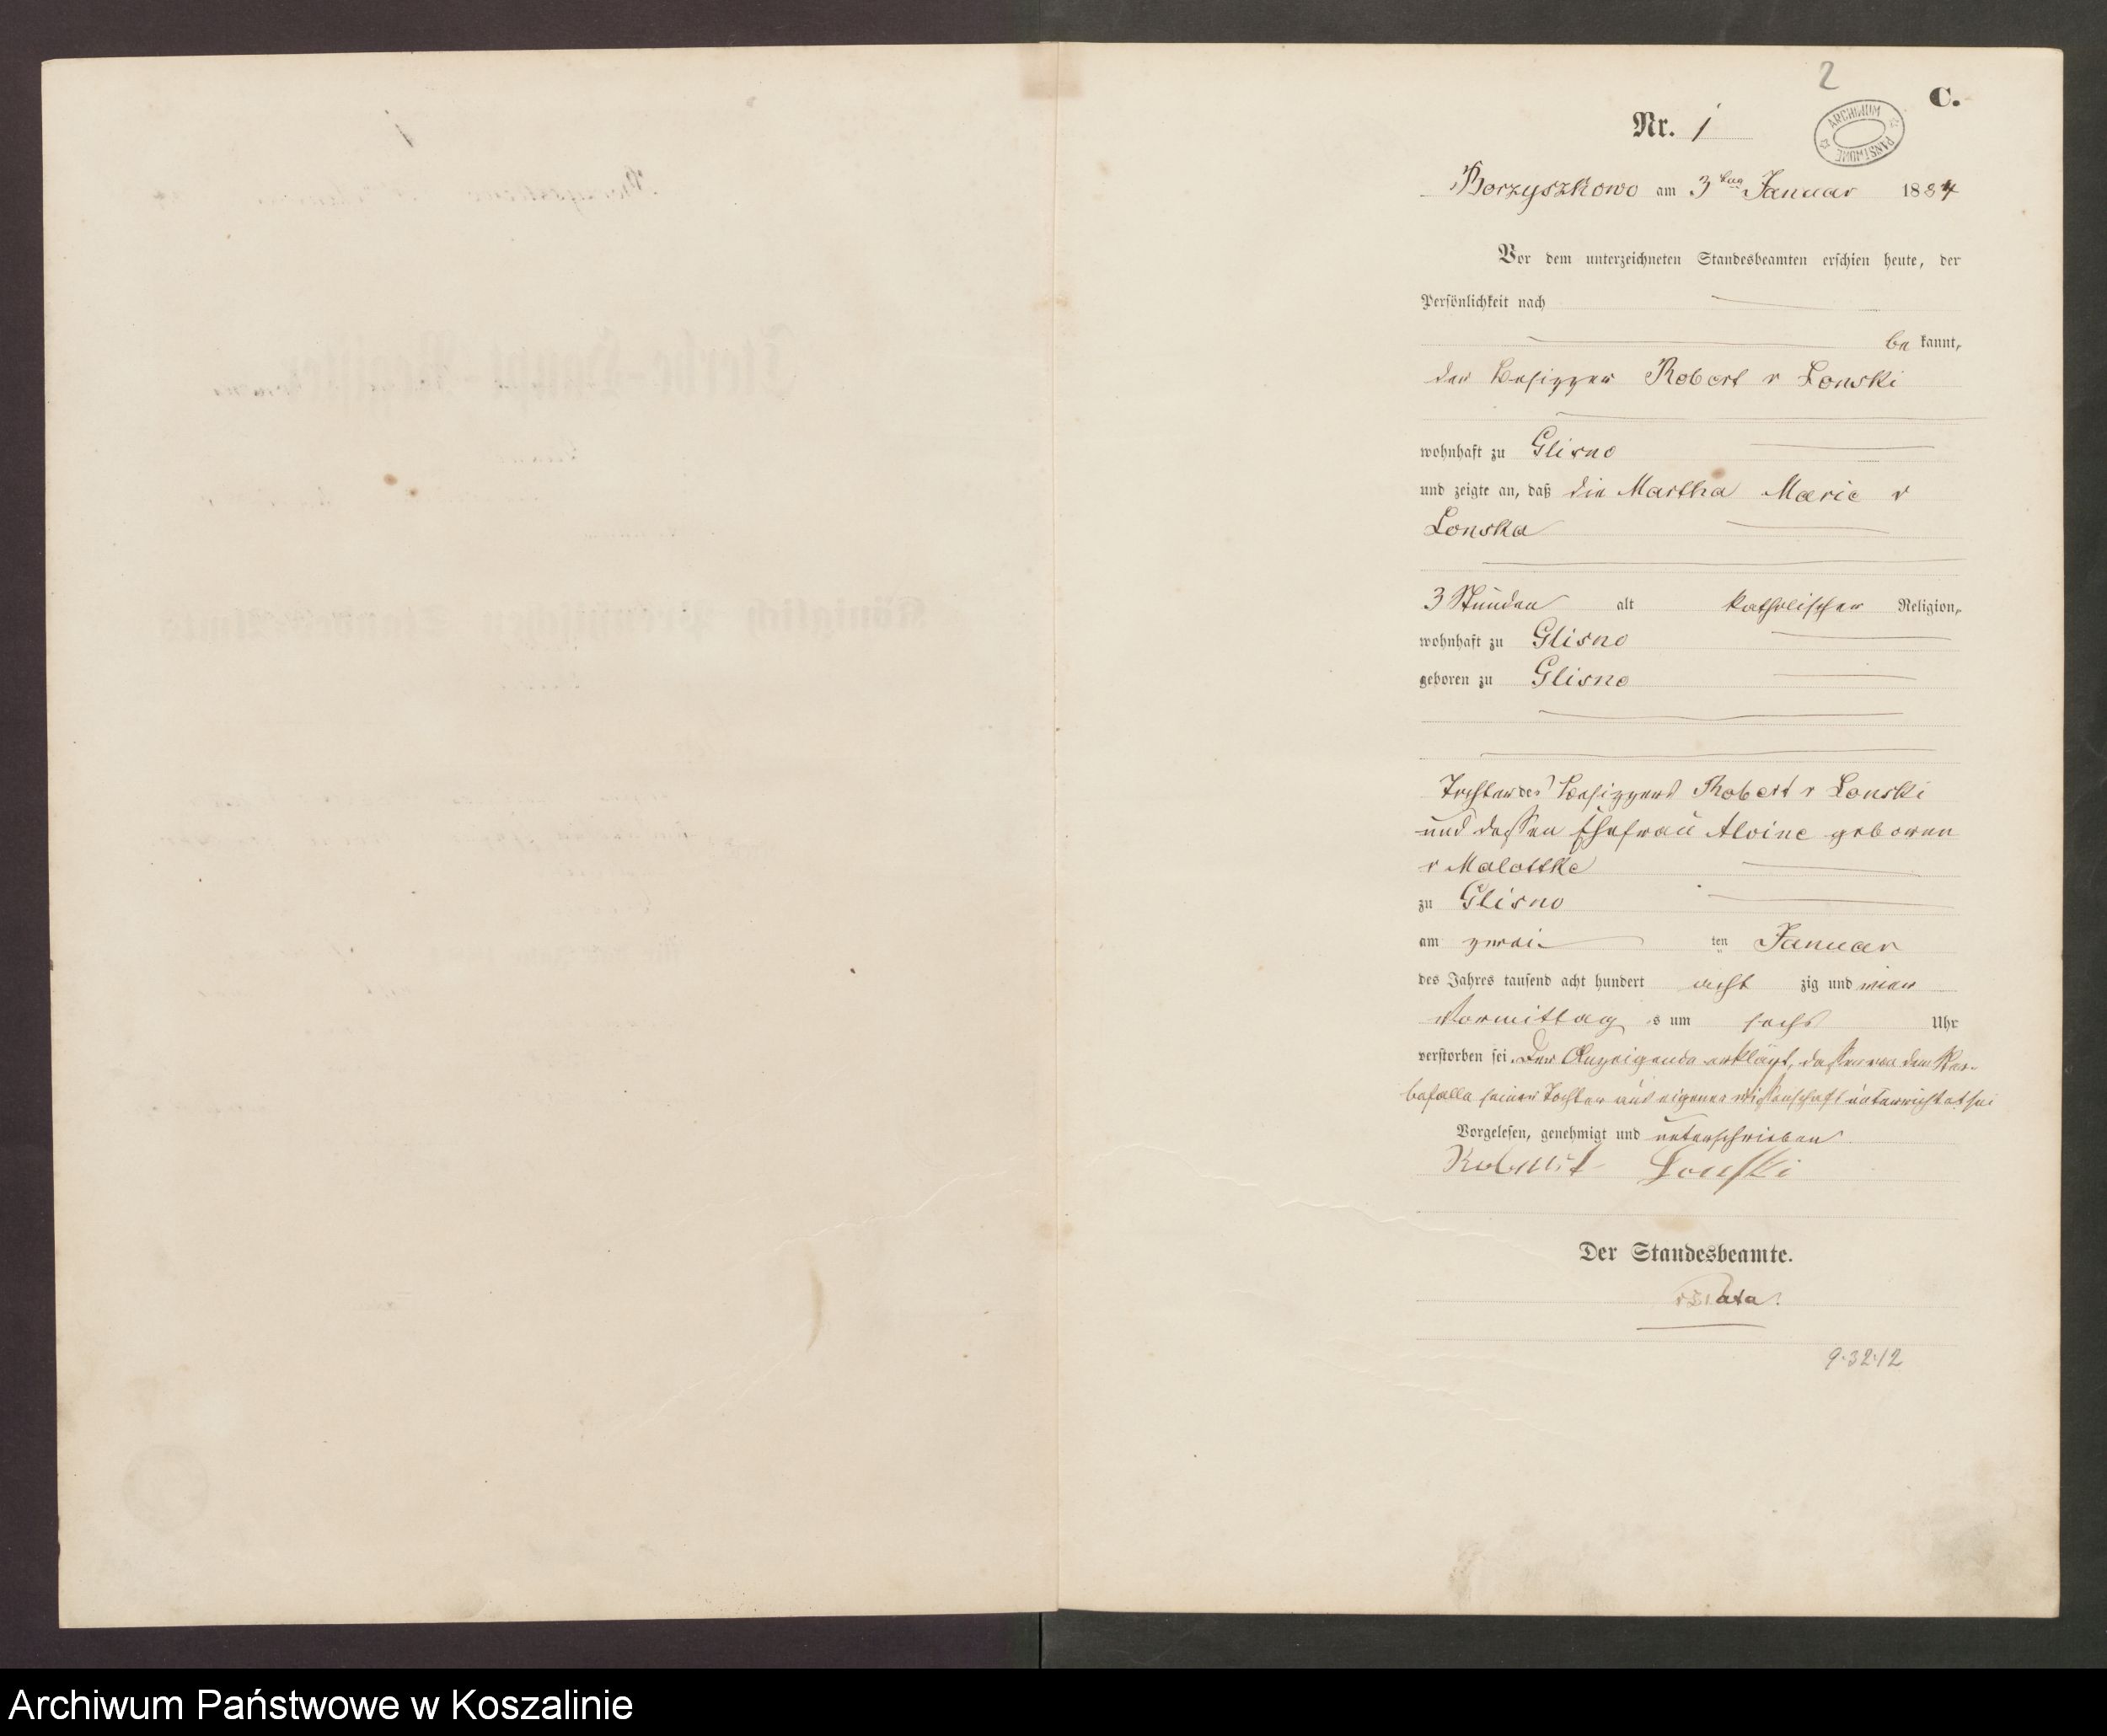 2
C.
ARCHIWUM PAŃSTWOWE
Nr. 1
Borzyszkowo am 3ten Januar 1884
Vor dem unterzeichneten Standesbeamten erschien heute, der
Persönlichkeit nach
be kannt,
der Besizzer Robert v Lonski
wohnhaft zu Glisno
und zeigte an, daß die Martha Marie v
Lonska
3 Stunden alt katholischer Religion,
wohnhaft zu Glisno
geboren zu Glisno
Tochter des Besizzers Robert v Lonski
und dessen Ehefrau Alvine geboren
v Malottke
zu Glisno
am zwei ten Januar
des Jahres tausend acht hundert acht zig und vier
Vormittag s um sechs Uhr
verstorben sei. Der Anzeigende erklärt, daß er von dem Ster-
befalle seiner Tochter aus eigener Wissenschaft unterrichtet sei
Vorgelesen, genehmigt und unterschrieben
Robert Lonski
Der Standesbeamte.
9.32.12
Archiwum Państwowe w Koszalinie